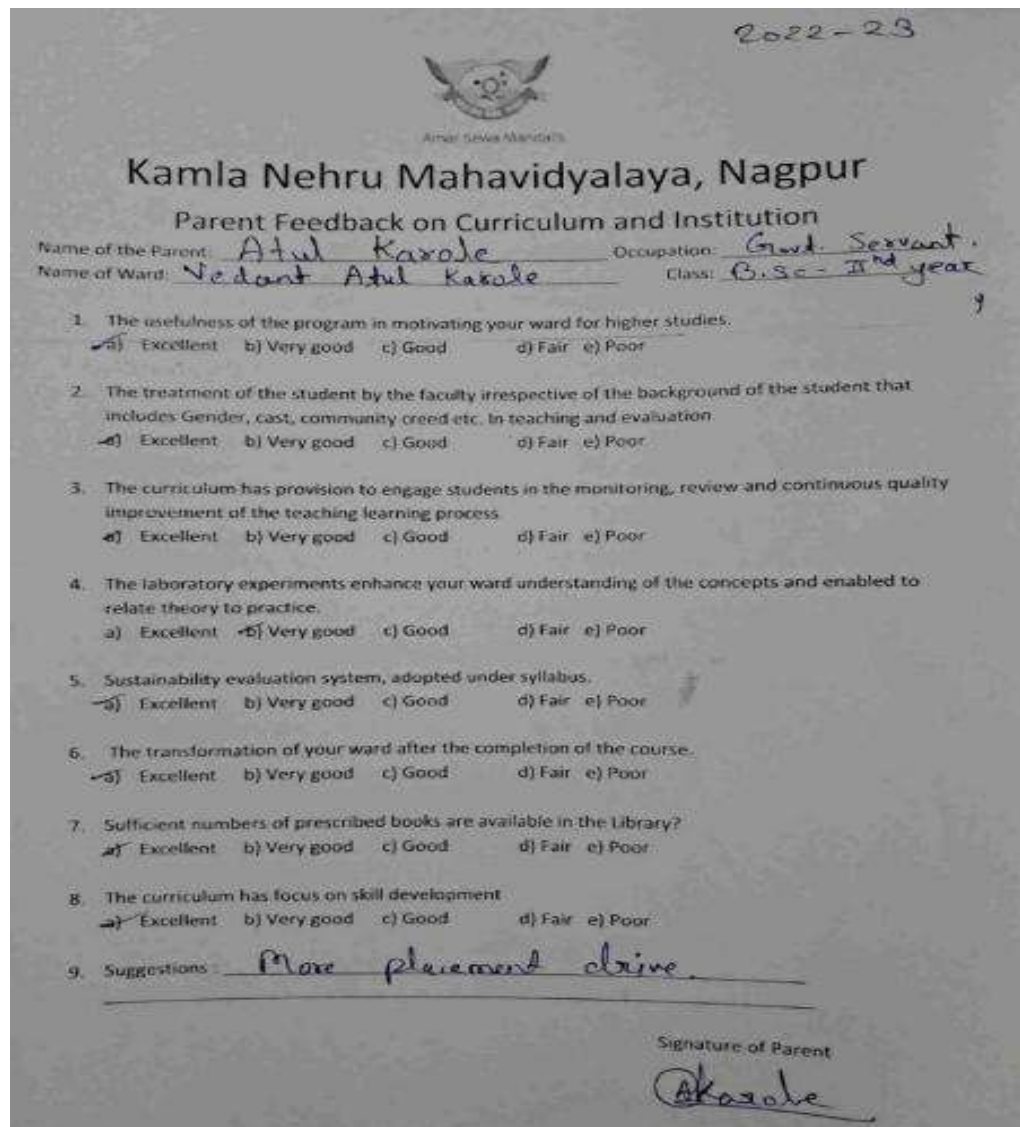 2022-23
Amar Sewa Mandal's
Kamla Nehru Mahavidyalaya, Nagpur
Parent Feedback on Curriculum and Institution
Name of the Parent: Atul Karole Occupation: Govt. Servant.
Name of Ward: Vedant Atul Karole Class: B.Sc - IInd year
1. The usefulness of the program in motivating your ward for higher studies.
a) Excellent b) Very good c) Good d) Fair e) Poor
2. The treatment of the student by the faculty irrespective of the background of the student that
includes Gender, cast, community creed etc. In teaching and evaluation
a) Excellent b) Very good c) Good d) Fair e) Poor
3. The curriculum has provision to engage students in the monitoring, review and continuous quality
improvement of the teaching learning process
a) Excellent b) Very good c) Good d) Fair e) Poor
4. The laboratory experiments enhance your ward understanding of the concepts and enabled to
relate theory to practice.
a) Excellent b) Very good c) Good d) Fair e) Poor
5. Sustainability evaluation system, adopted under syllabus.
a) Excellent b) Very good c) Good d) Fair e) Poor
6. The transformation of your ward after the completion of the course.
a) Excellent b) Very good c) Good d) Fair e) Poor
7. Sufficient numbers of prescribed books are available in the Library?
a) Excellent b) Very good c) Good d) Fair e) Poor
8. The curriculum has focus on skill development
a) Excellent b) Very good c) Good d) Fair e) Poor
9. Suggestions : More placement drive.
Signature of Parent
AKarole